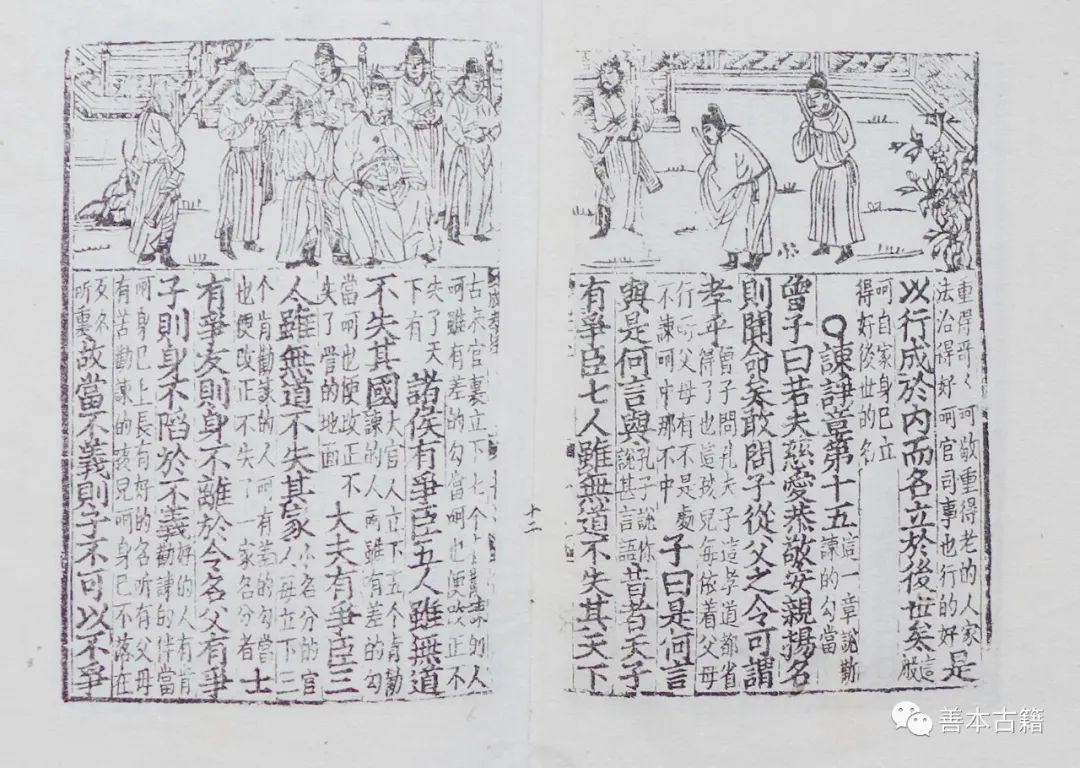 重得哥〻呵敬重得老的人家
法治得好呵官司事也行的好
是
以行成於內而名立於後世矣
這
般
呵自家身已立
得好後世的名
〇諫諍章第十五
這一章說勸
諫的勾當
曾子曰若夫慈愛恭敬安親揚名
則聞命矣敢問子從父之令可謂
孝乎
曾子問孔夫子這孝道都省
得了也這孩兒每依着父母
行呵父母有不是處
不諫呵中那不中
子曰是何言
與是何言與
孔子說你
說甚言語
昔者天子
有爭臣七人雖無道不失其天下
十二
古來官裏立下七个諫的人
呵雖有差的勾當呵也便改正不
失了天
下有
諸侯有爭臣五人雖無道
不失其國
大官人立下五个肯勸
諫的人呵雖有差的勾
當呵也便改正不
失了管的地面
大夫有爭臣三
人雖無道不失其家
小名分的官
人每立下三
个肯勸諫的人呵有差的勾當
也便改正不失了一家名分者
士
有爭友則身不離於令名父有爭
子則身不陷於不義
好的人有肯
勸諫的伴當
呵身已上長有好的名听有父母
有苦勸諫的孩兒呵身已不落在
歹名
所裏
故當不義則子不可以不爭
善本古籍